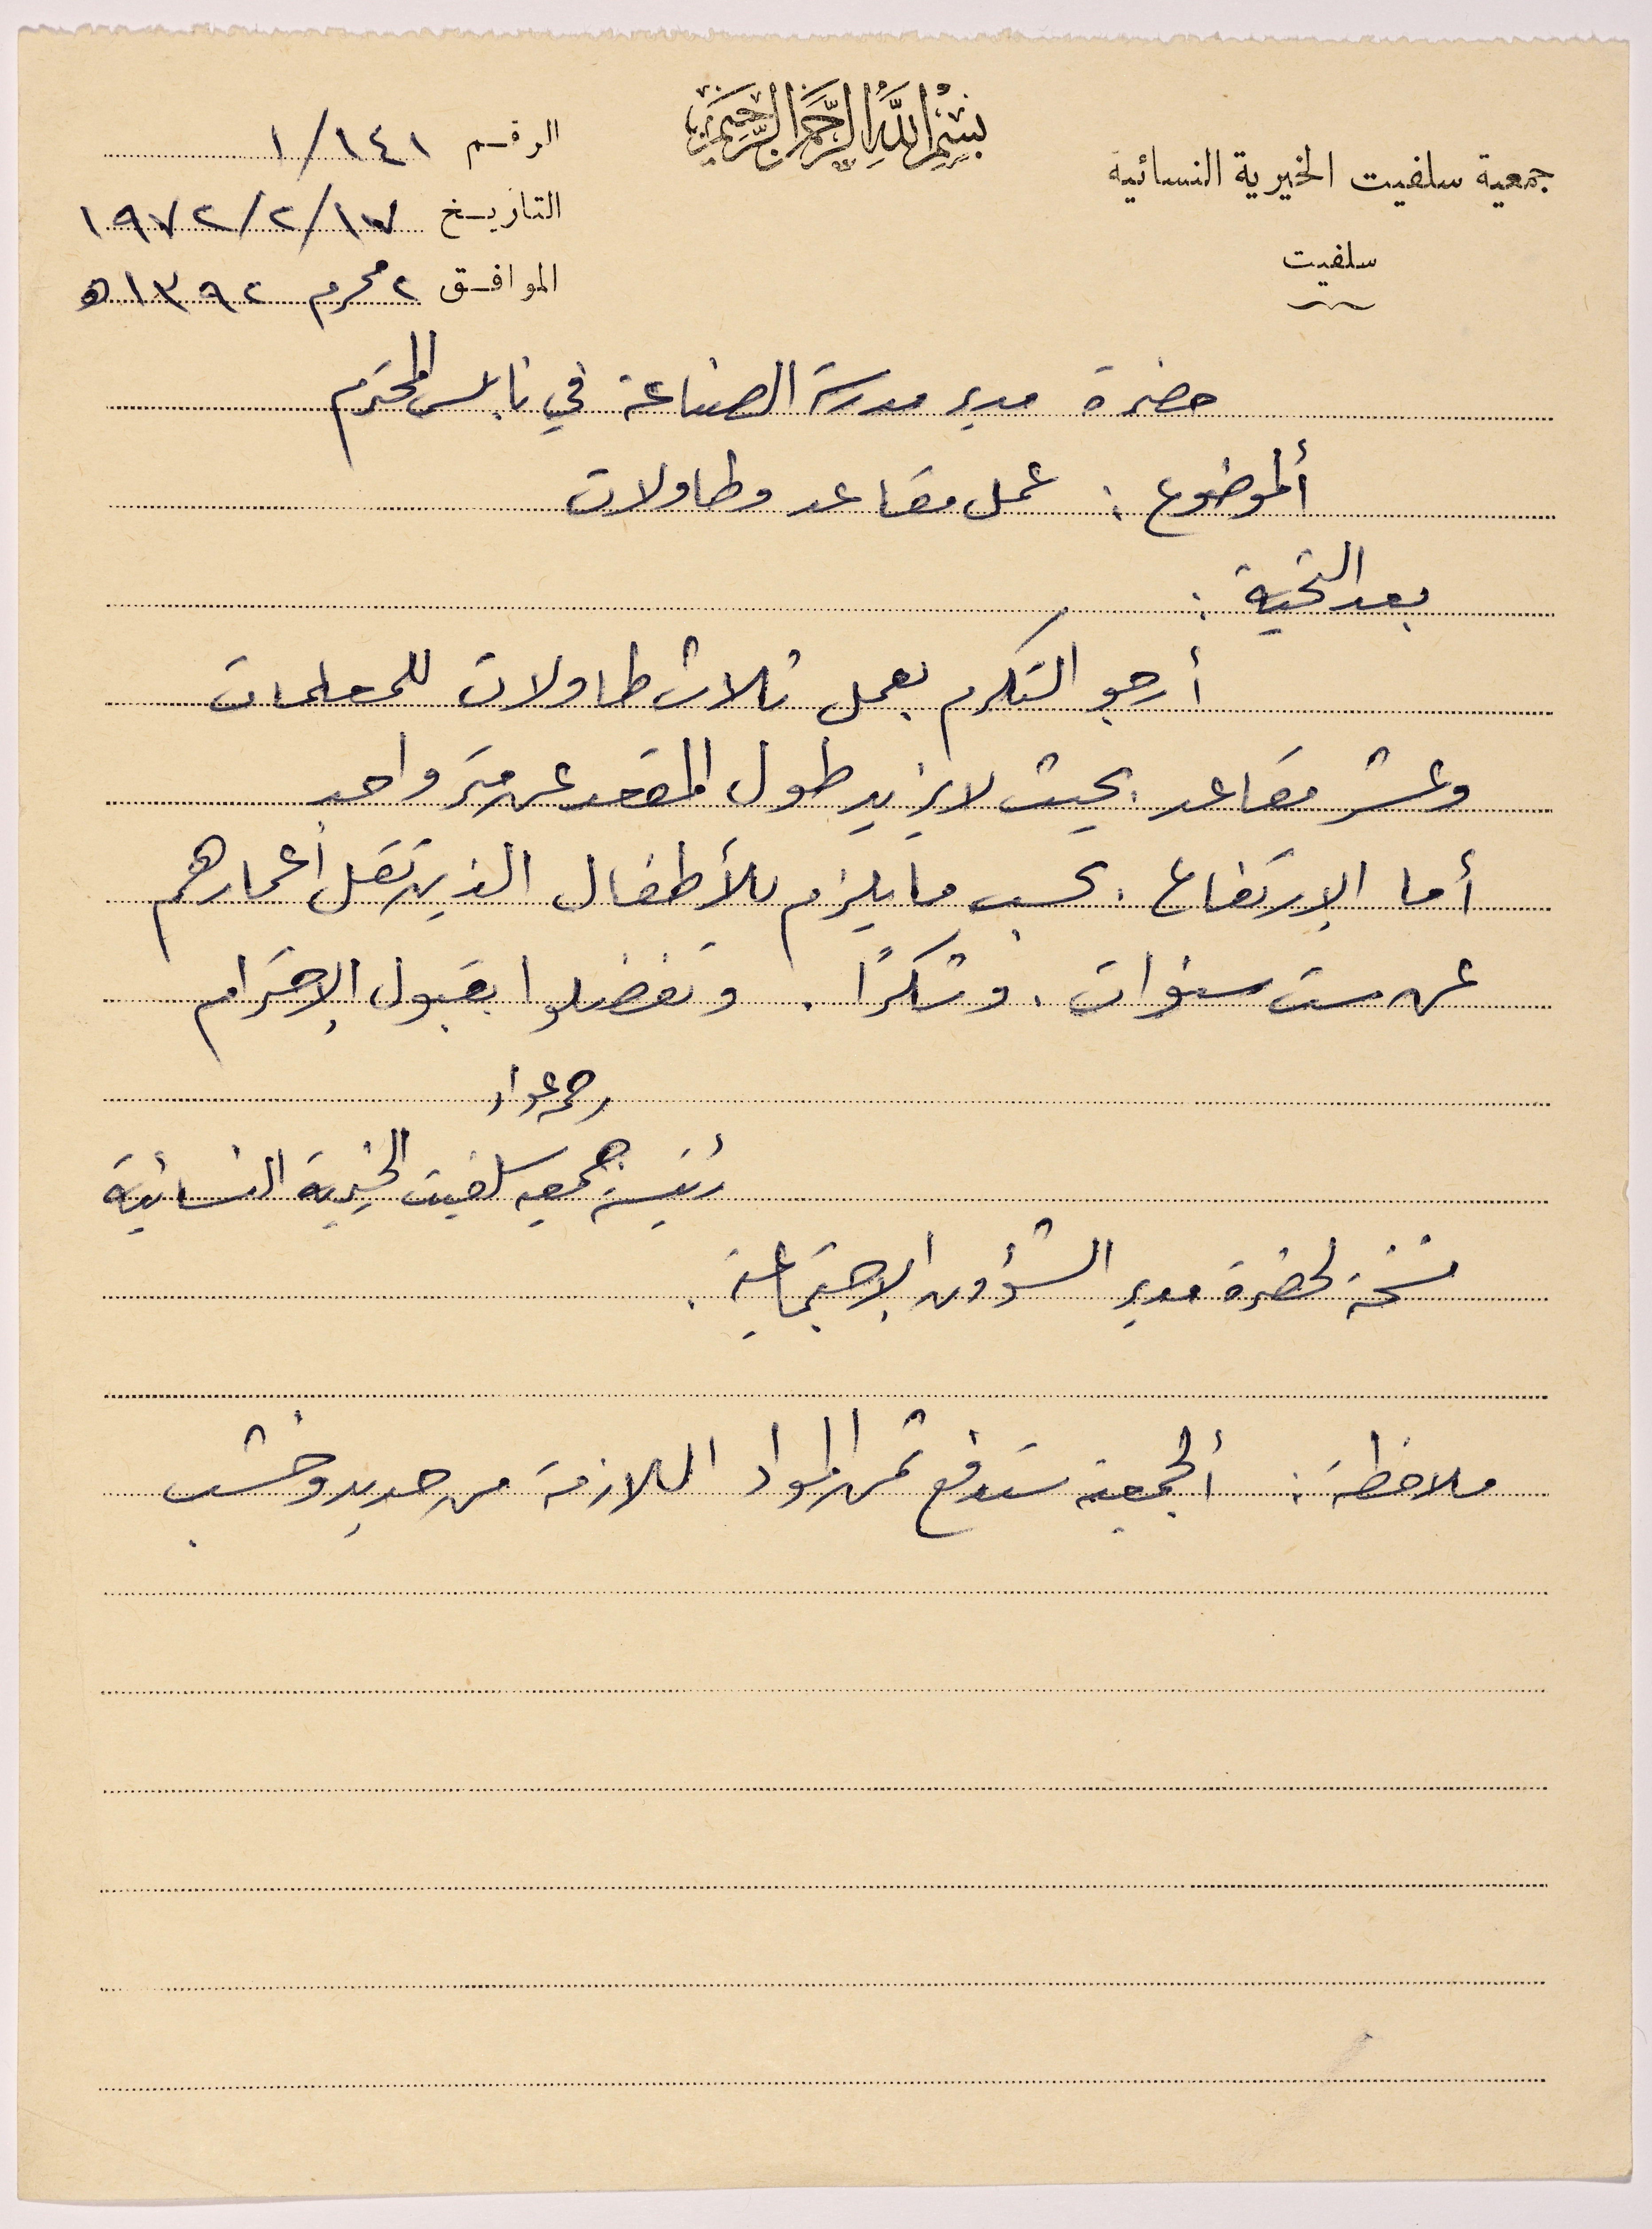 بسم الله الرحمن الرحيم
جمعية سلفيت الخيرية النسائية
سلفيت
الرقم ١/١٤١
التاريخ ١٩٧٢/٢/١٧
الموافق ٢ محرم ١٣٩٢ه
حضرة مدير مدرسة الصناعة في نابلس المحترم
ألموضوع : عمل مقاعد وطاولات
بعد التحية :
أرجو التكرم بعمل ثلاث طاولات للمعلمات
وعشر مقاعد . بحيث لا يزيد طول المقعد عن متر واحد
أما الإرتفاع . بحسب ما يلزم للأطفال الذين تقل أعمارهم
عن ست سنوات . وشكرًا . وتفضلوا بقبول الإحترام
رحمه عواد
رئيسة جمعيه سلفيت الخيرية النسائية
نسخة لحضرة مدير الشؤون الإجتماعية .
ملاحظة : ألجمعية ستدفع ثمن المواد اللازمة من حديد وخشب